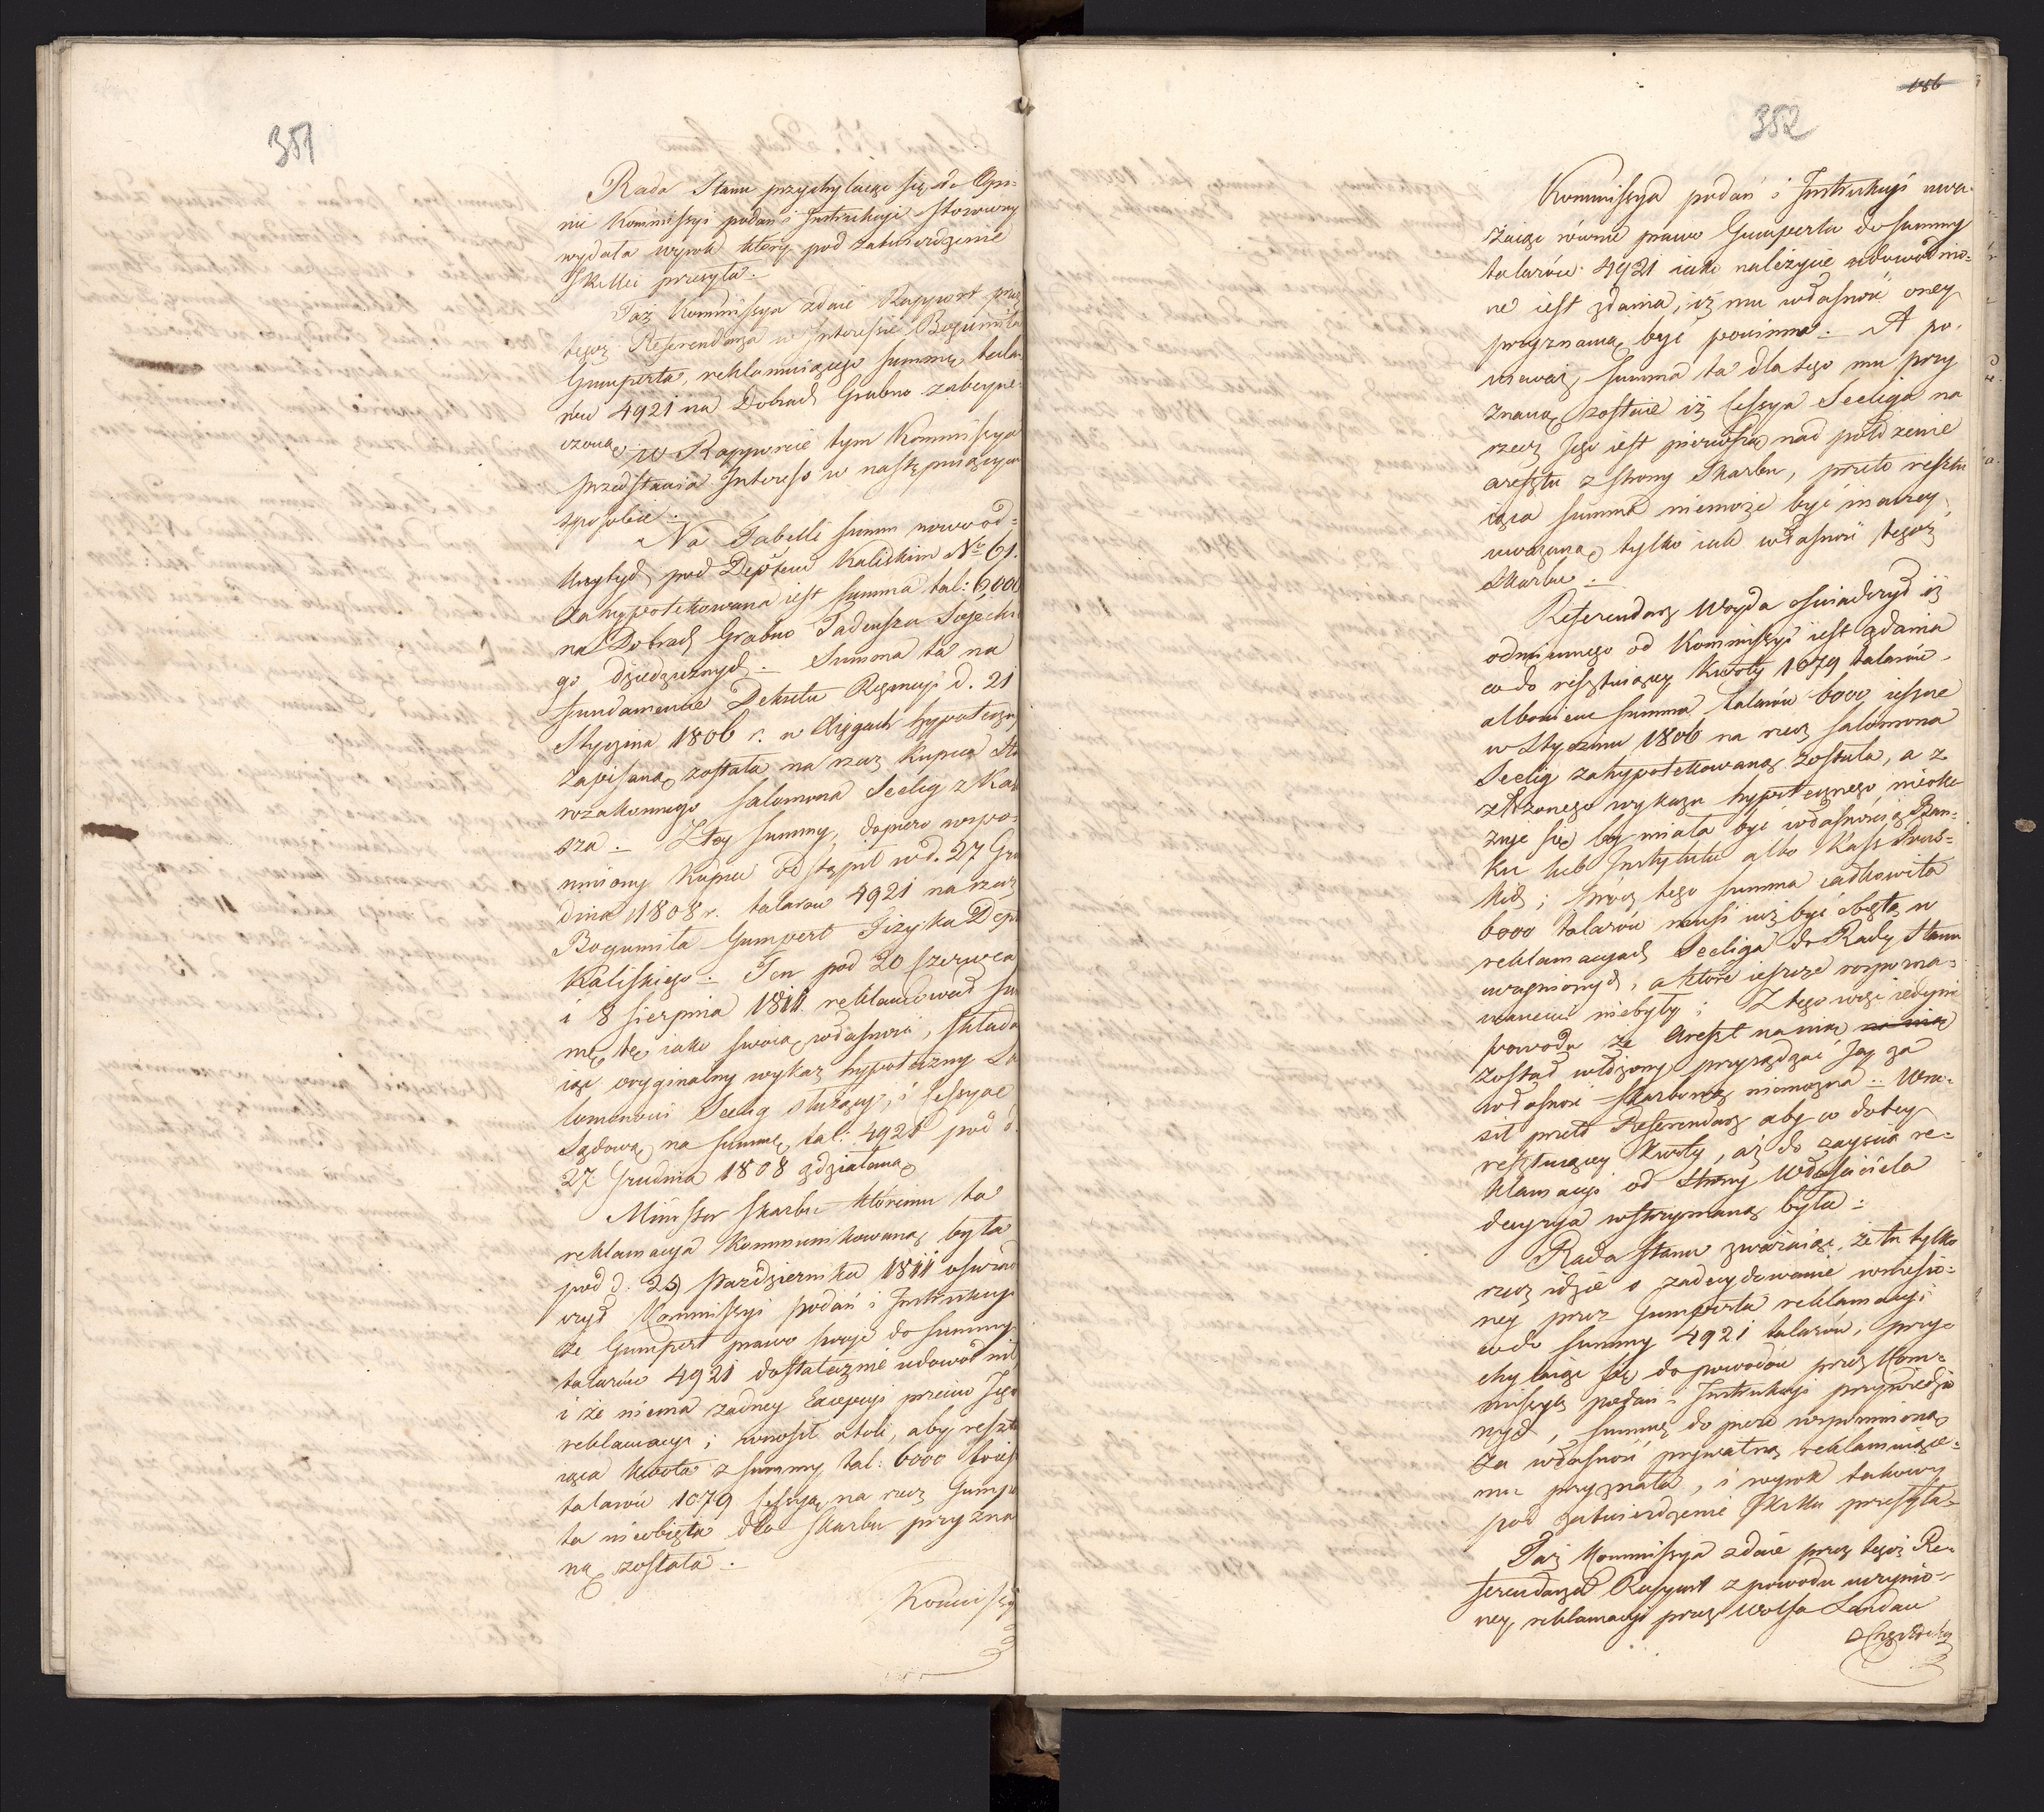 351
Rada Stanu przychylaiąc się do Opi=
nii Kommissyi podań i Instrukcyi stosowny
wydała wyrok który pod zatwierdzenie
JKMci przesyła.
Taż Kommissya zdaie Rapport przez
tegoż Referendarza w Interessie Bogumiła
Gumperta, reklamuiącego summę tala=
rów 4921 na Dobrach Grabno zabezpie=
czoną w Rapporcie tym Kommissya
przedstawia Interess w następuiącym
sposobie:
Na Tabelli summ nowo od=
krytych pod Depśtem Kaliskim No 61.
Zahypotekowana iest summa tal: 6000
na Dobrach Grabno Tadeusza
go dziedzicznych. Summa ta na
fundamencie Dekretu Regencyi d. 21
Stycznia 1806 r. w Xięgach hypoteczn
zapisaną została na rzecz Kupca Sta
rozakonnego Salomona Seelig z Kali
sza. Z tey summy, dopiero wspo=
mniony Kupiec odstąpił w d. 27 Gru
dnia 1808 r. talarów 4921 na rzecz
Bogumiła Gumpert Fizyka Dep
Kaliskiego. Ten pod 20 Czerwca
i 8 Sierpnia 1811. reklamował sum
mę tę iako swoią własność, składa
iąc oryginalny wykaz hypoteczny Sa
lomonowi Seelig służący, i Cessyą
Sądową na summę tal: 4921 pod d.
27 Grudnia 1808 zdziałaną
Minister Skarbu któremu ta
reklamacya kommunikowaną była
pod d. 29 Października 1811 oświad
czył Kommissyi podań i Instrukcyi
że Gumpert prawo swoje do summy
talarów 4921 dostatecznie udowodnił
i że niema żadney Excepcyi przeciw Jego
reklamacyi; wnosił atoli, aby reszt
iąca kwota z summy tal: 6000 to iest
talarów 1079 Cessyą na rzecz Gumpe
ta nieobięta dla Skarbu przyzna
ną została.
Kommissya
186
352
Kommissya podań i Instrukcyi uwa=
żaiąc równie prawo Gumperta do summy
talarów 4921 iako należycie udowodnio=
ne iest zdania, iż mu własność oney
przyznaną być powinna. A po=
nieważ, summa ta dla tego mu przy
znaną zostaie iż Cessya Seeliga na
rzecz Jego iest pierwszą nad położenie
aresztu z strony Skarbu, przeto resztu
iąca summa niemoże być inaczey
uważaną tylko iak własność tegoż
Skarbu.
Referendarz Woyda oświadczył iż
odmiennego od Kommissyi iest zdania
co do resztuiącey kwoty 1079 talarów.
albowiem summa talarów 6000 ieszcze
w Styczniu 1806 na rzecz Salomona
Seelig zahypotekowaną została, a z
złożonego wykazu hypotecznego nieoka
zuje się by miała być własnością Ban=
ku lub Instytutu albo Kass Prus=
kich; prócz tego summa całkowita
6000 talarów musi iuż być obiętą w
reklamacyach Seeliga do Rady Stanu
uczynionych, a które ieszcze rozpozna=
wanemi niebyły; Z tego więc iedynie
powodu że Areszt na nią na nią
został włożony przysądzać Jey za
własność skarbową niemożna. Wno=
sił przeto Referendarz aby co do tey
resztuiącey kwoty, aż do zayścia re=
klamacyi od strony Właściciela
decyzya wstrzymaną była.
Rada Stanu zważaiąc, że tu tylko
rzecz idzie o zadecydowanie wniesio=
ney przez Gumperta reklamacyi
co do summy 4921 talarów, przy=
chylaiąc się do powodów przez Kom=
missyą podań i Instrukcyi przywiedzio
nych, summę dopiero wspomnioną
za własność prywatną reklamuiące=
mu przyznała, i wyrok takowy
pod zatwierdzenie JKMci przesyła.
Taż Kommissya zdaie przez tegoż Re=
ferendarza Rapport z powodu uczynio=
ney reklamacyi przez Wolfa Landau